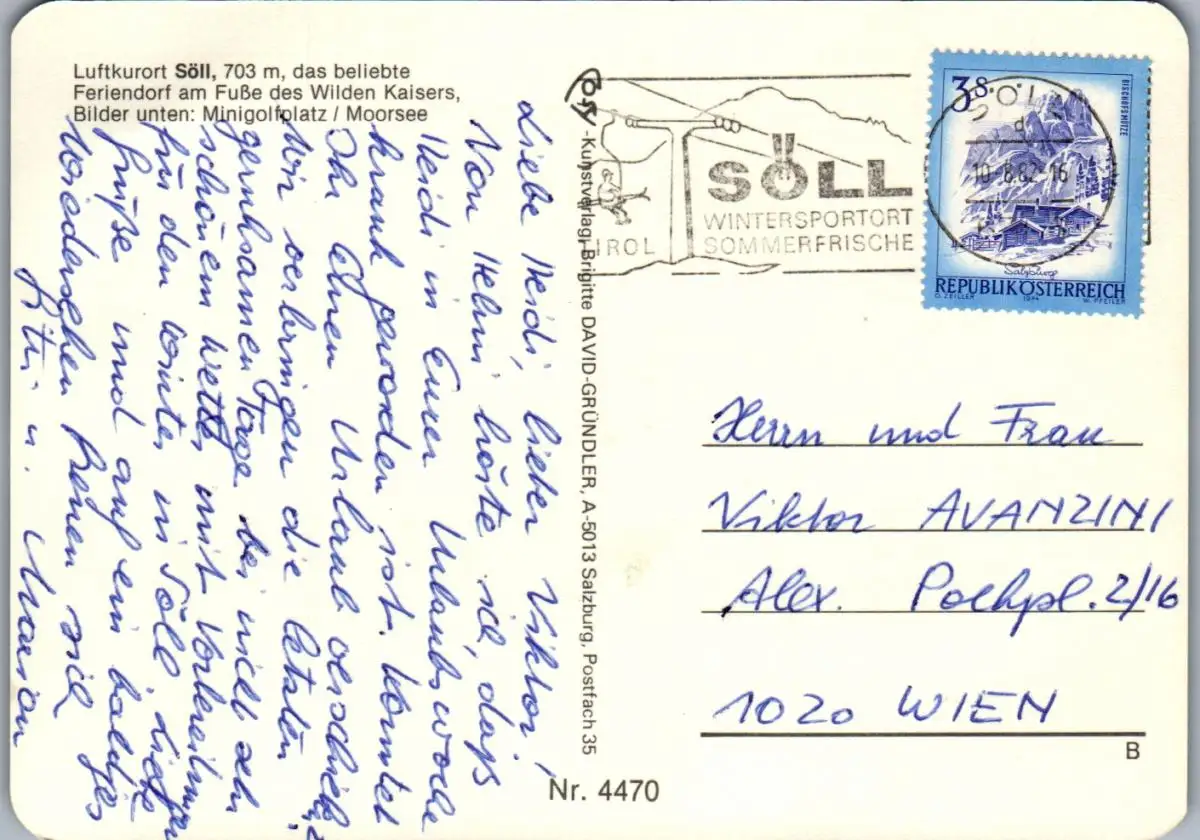 Luftkurort Söll, 703 m, das beliebte
Feriendorf am Fuße des Wilden Kaisers,
Bilder unten: Minigolfplatz / Moorsee
Liebe Heidi, lieber Viktor!
Von Helmi hörte ich, daß
Heidi in Eurer Urlaubswoche
krank geworden ist. Konntet
Ihr Euren Urlaub verschieben?
Wir verbringen die letzten
geruhsamen Tage bei nicht sehr
schönem Wetter mit Vorbereitungen
für den Winter in Söll. Liebe
Grüße und auf ein baldiges
Wiedersehen freuen sich
u. Marion
-Kunstverlag Brigitte DAVID-GRÜNDLER, A-5013 Salzburg, Postfach 35
Nr. 4470
TIROL
SÖLL
WINTERSPORTORT
SOMMERFRISCHE
3 S
BISCHOFSMÜTZE
SÖLL
10.-8.82-16
Salzburg
REPUBLIK ÖSTERREICH
O. ZEILLER 1974 W. PFEILER
Herrn und Frau
Viktor AVANZINI
Alex. Pochpl. 2/16
1020 WIEN
B